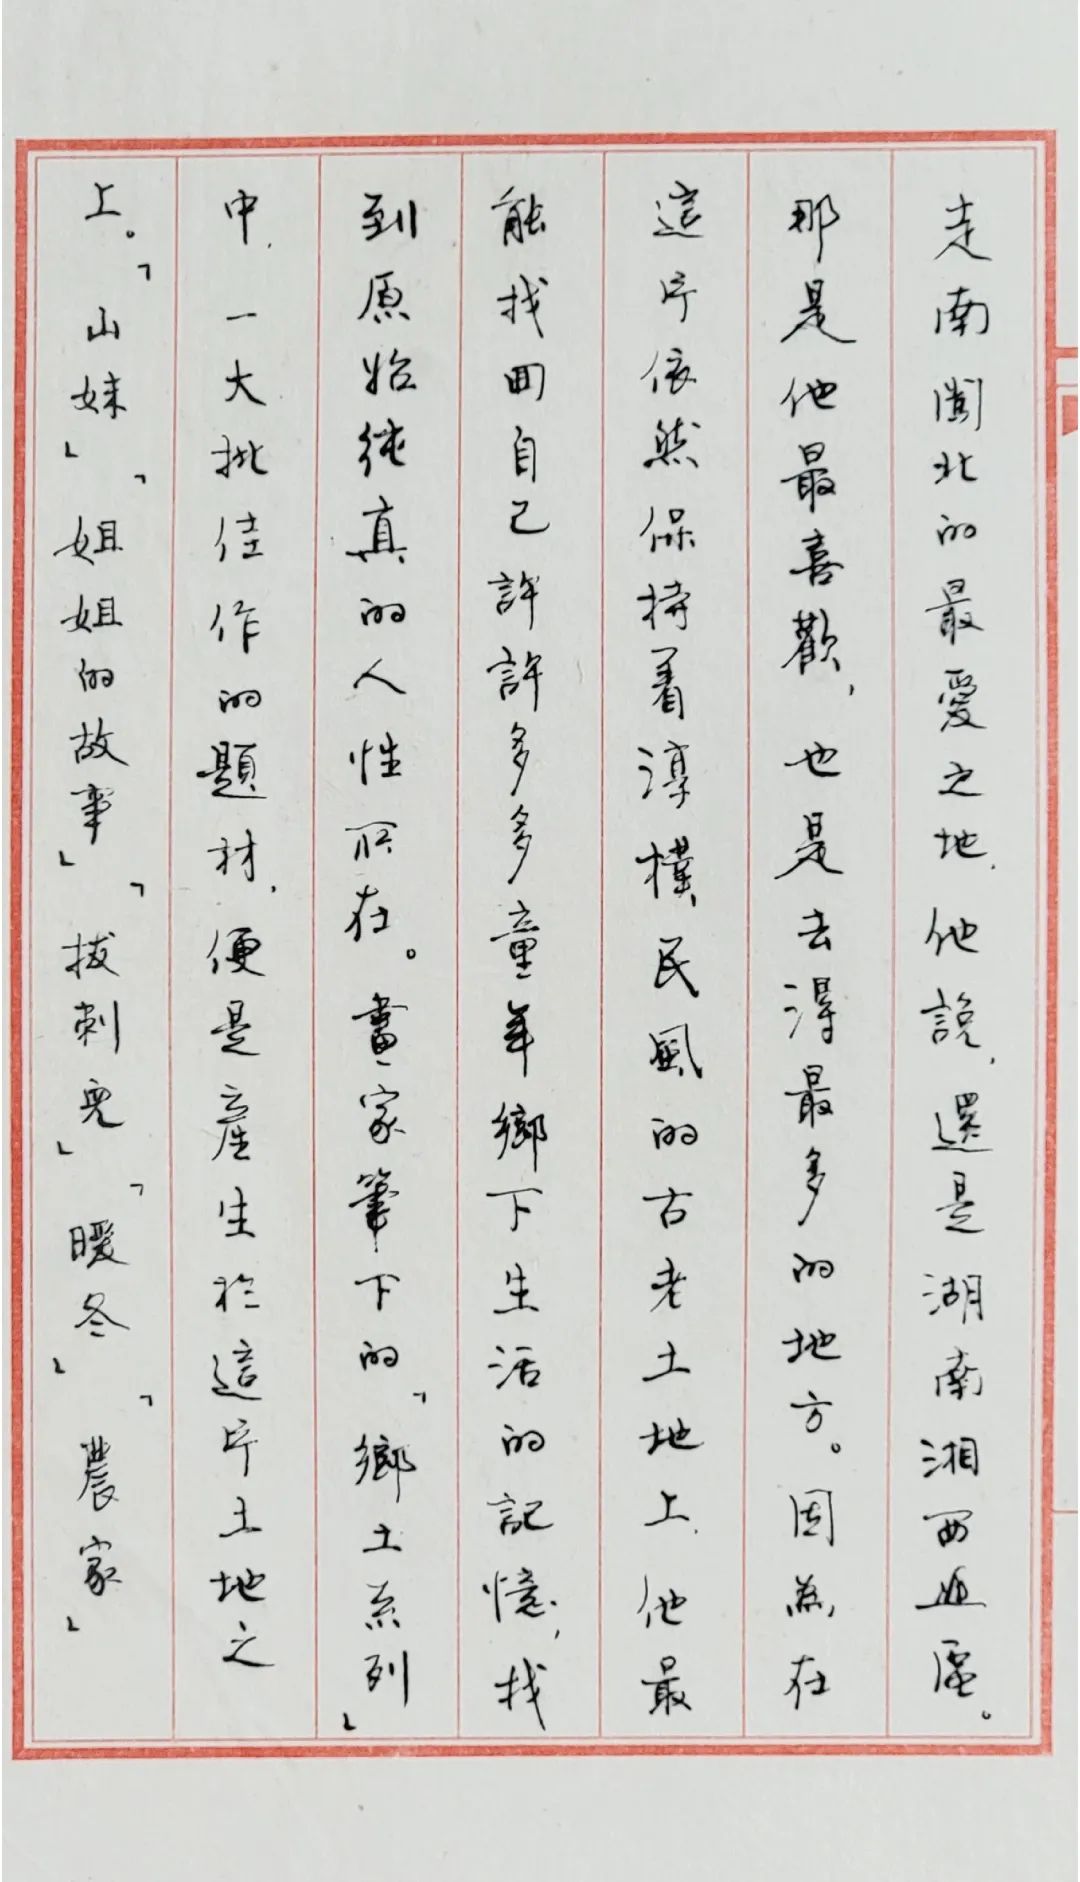 走南闖北的最愛之地，他說，還是湖南湘西
那是他最喜歡，也是去得最多的地方。因為在
這片依然保持着淳樸民風的古老土地上，他最
能找回自己許許多多童年鄉下生活的記憶，找
到原始純真的人性所在。畫家筆下的「鄉土系列」
中，一大批佳作的題材，便是產生於這片土地之
上。「山妹」「姐姐的故事」「拔刺兒」「暖冬」「農家」